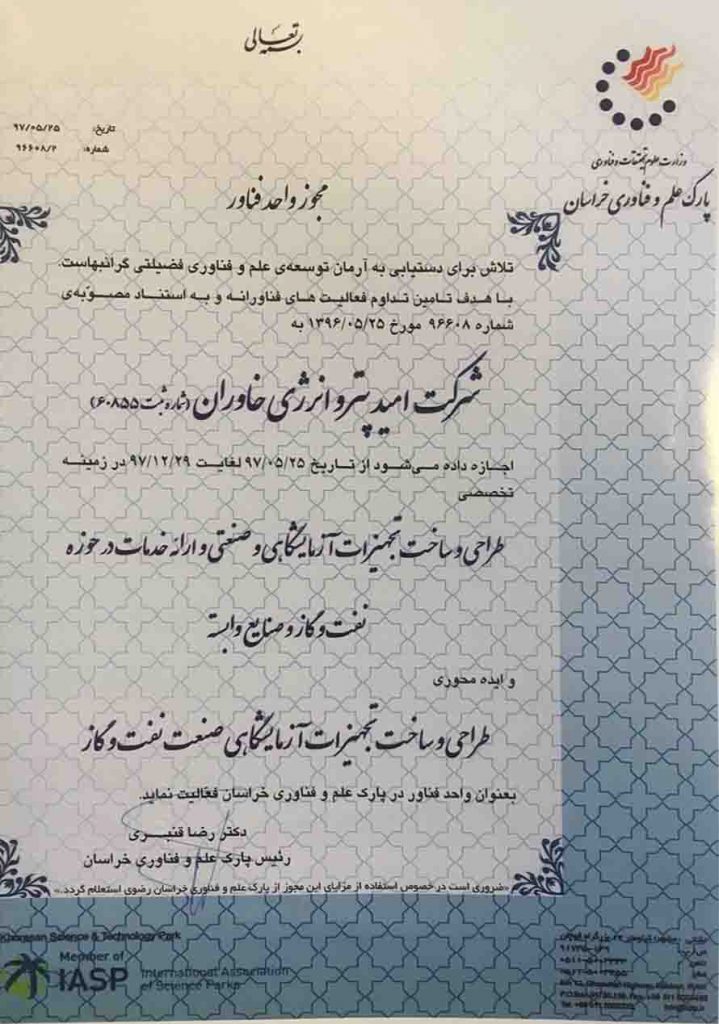 بسمه تعالی
تاریخ: ۹۷/۰۵/۲۵
شماره: ۹۶۶۰۸/۲
وزارت علوم تحقیقات و فناوری
پارک علم و فناوری خراسان
مجوز واحد فناور
تلاش برای دستیابی به آرمان توسعه‌ی علم و فناوری فضیلتی گرانبهاست.
با هدف تامین تداوم فعالیت های فناورانه و به استناد مصوّبه‌ی
شماره ۹۶۶۰۸ مورخ ۱۳۹۶/۰۵/۲۵ به
شرکت امید پترو انرژی خاوران (شماره ثبت ۶۰۸۵۵)
اجازه داده می‌شود از تاریخ ۹۷/۰۵/۲۵ لغایت ۹۷/۱۲/۲۹ در زمینه
تخصصی
طراحی و ساخت تجهیزات آزمایشگاهی و صنعتی و ارائه خدمات در حوزه
نفت و گاز و صنایع وابسته
و ایده محوری
طراحی و ساخت تجهیزات آزمایشگاهی صنعت نفت و گاز
بعنوان واحد فناور در پارک علم و فناوری خراسان فعّالیت نماید.
دکتر رضا قنبری
رئیس پارک علم و فناوری خراسان
«ضروری است در خصوص استفاده از مزایای این مجوز از پارک علم و فناوری خراسان رضوی استعلام گردد.»
Khorasan Science & Technology Park
Member of
IASP
International Association
of Science Parks